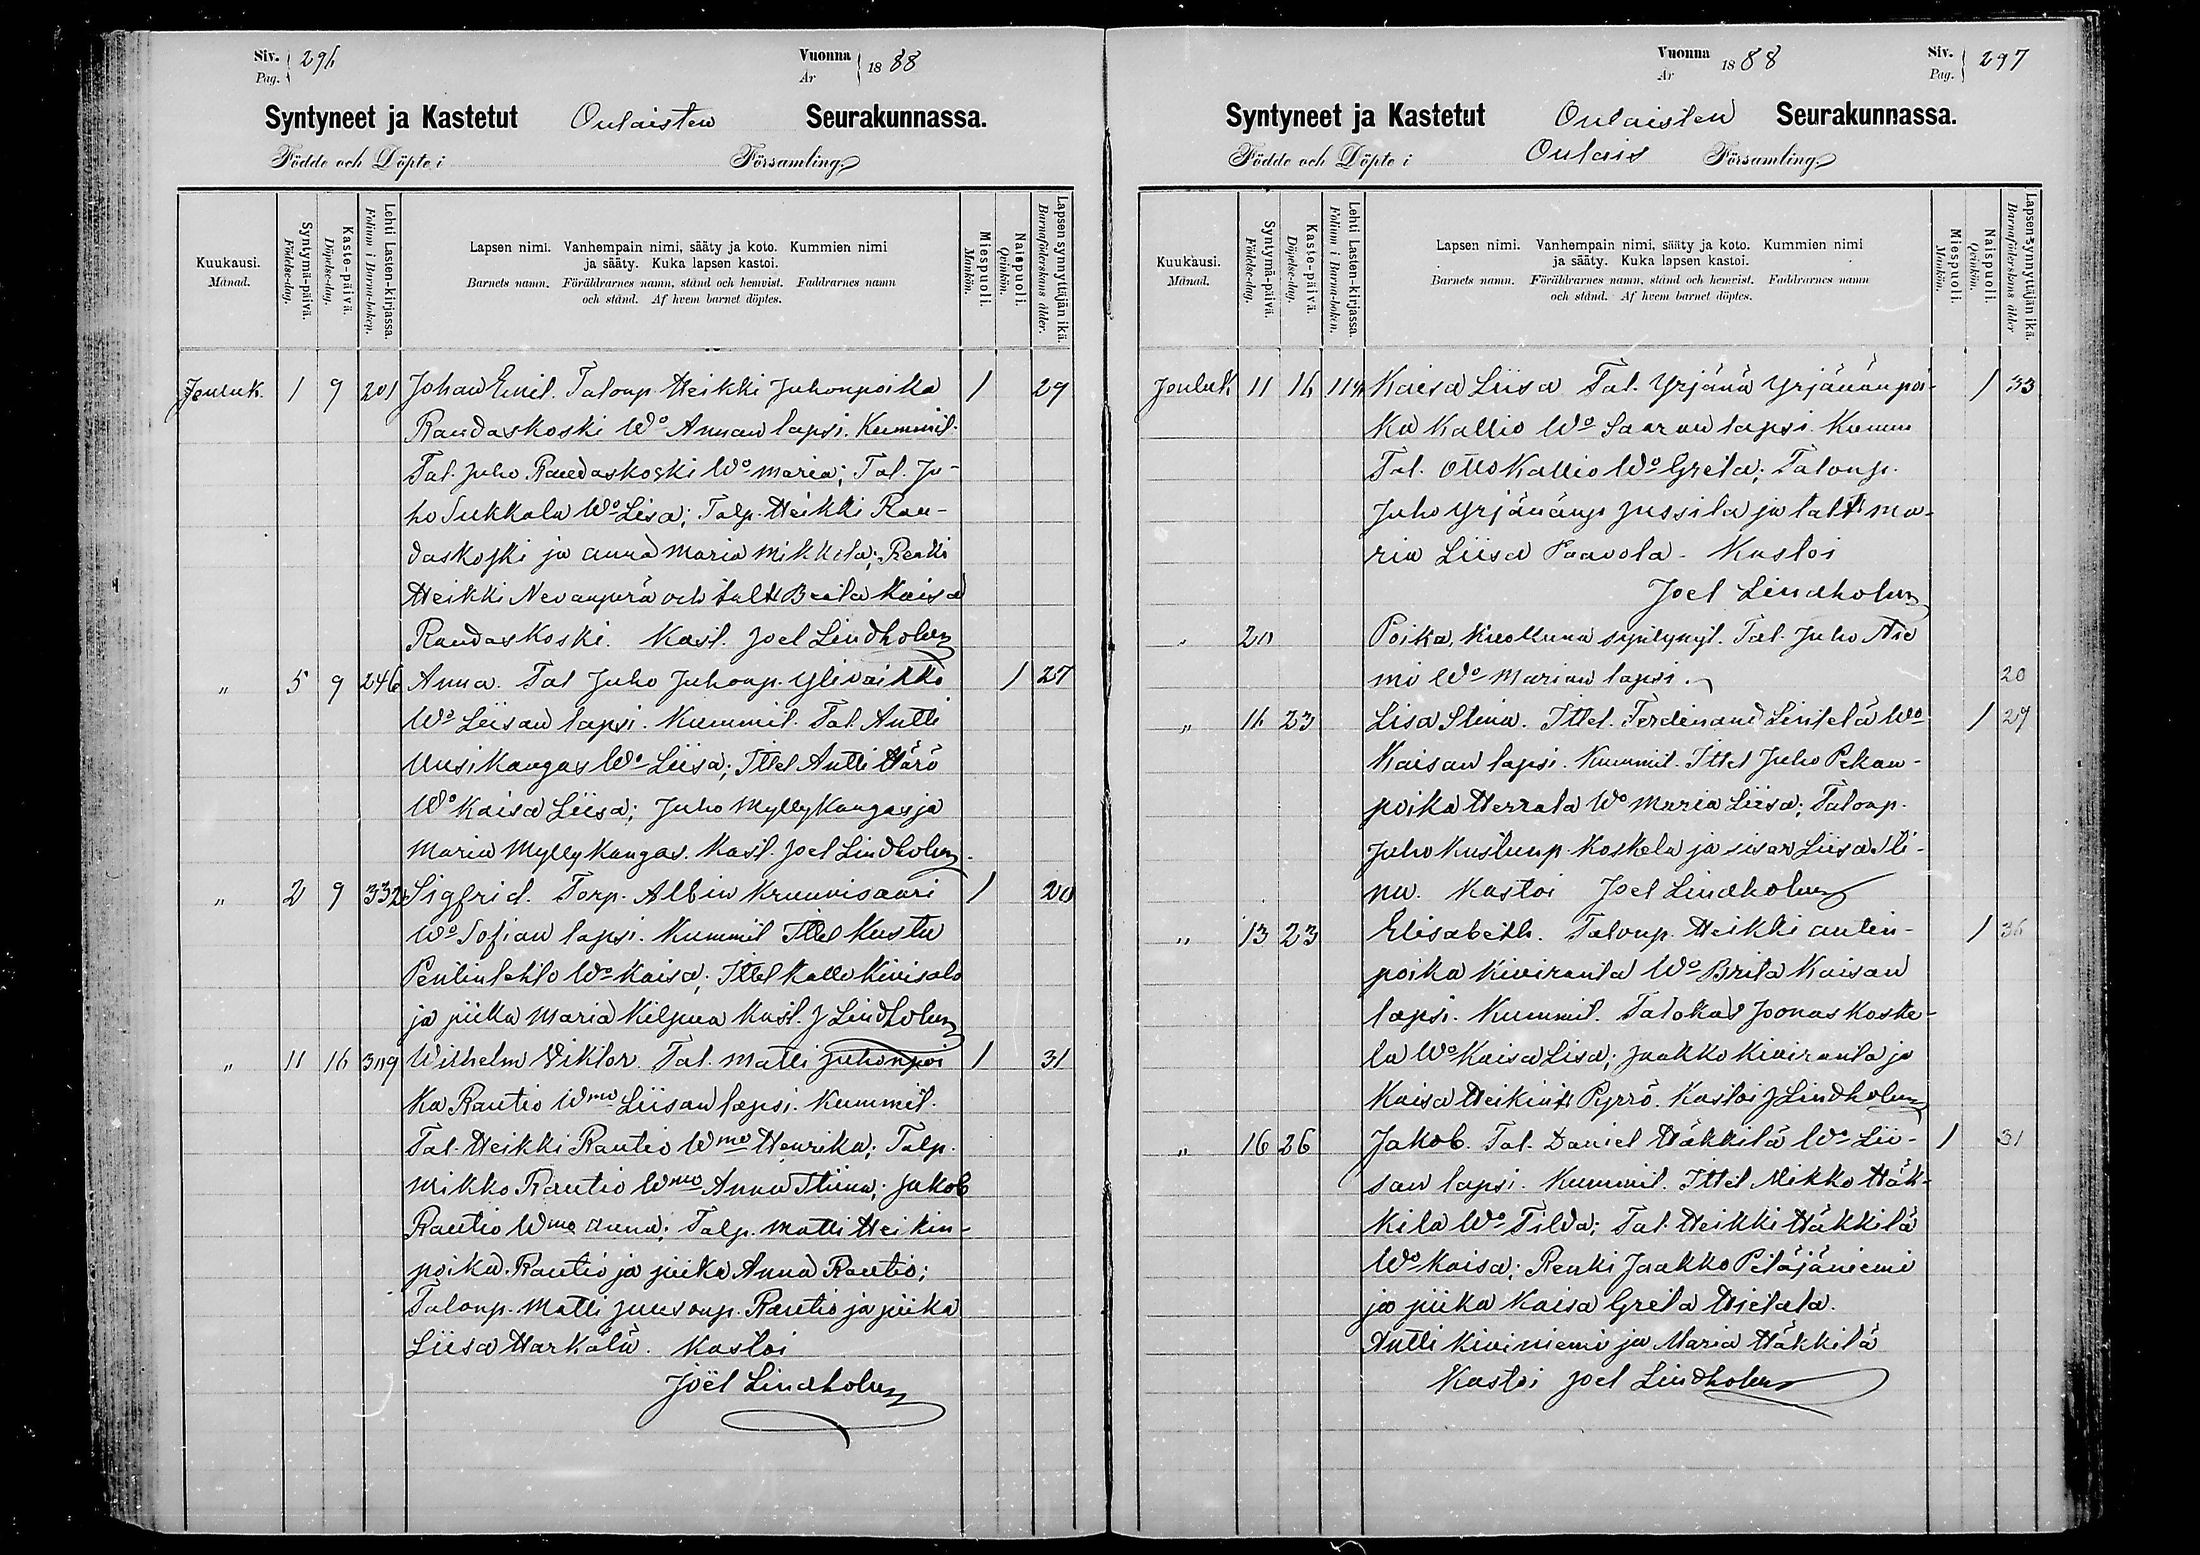 Siv. Pag. 296 Vuonna År 1888
Syntyneet ja Kastetut Oulaisten Seurakunnassa.
Födde och Döpte i Församling
Kuukausi. Månad.
Syntymä-päivä. Födelse-dag.
Kaste-päivä. Döpelse-dag.
Lehti Lasten-kirjassa. Folium i Barna-boken.
Lapsen nimi. Vanhempain nimi, sääty ja koto. Kummien nimi
ja sääty. Kuka lapsen kastoi.
Barnets namn. Föräldrarnes namn, stånd och hemvist. Faddrarnes namn
och stånd. Af hvem barnet döptes.
Miespuoli. Mankön.
Naispuoli. Qvinkön.
Lapsen synnyttäjän ikä. Barnaföderskans ålder.
Jouluk. 1 9 201 Johan Emil. Taloup Heikki Juhonpoika 1 29
Raudaskoski Wo Annan lapsi. Kummit.
Tal. Juho Raudaskoski Wo Maria; Tal. Ju-
ho Sukkala Wo Lisa; Talp. Heikki Rau-
daskoski ja Anna Maria Mikkola; Renki
Heikki Nevanperä och talt Brita Kaisa
Raudaskoski. Kast. Joel Lindholm
" 5 9 246 Anna. Tal Juho Juhonp. Ylivaikko 1 27
Wo Liisan lapsi. Kummit. Tal. Antti
Uusikangas Wo Liisa; Ittel Antti Härö
Wo Kaisa Liisa; Juho Myllykangas ja
Maria Myllykangas. Kast. Joel Lindholm.
" 2 9 332 Sigfrid. Torp. Albin Kruunisaari 1 20
Wo Sofian lapsi. Kummit Ittel Kustu
Pentinlehto Wo Kaisa; Ittel Kalle Kivisalo
ja piika Maria Kilpua Kast. J Lindholm
" 11 16 309 Wilhelm Viktor. Tal. Matti Juhonpoi 1 31
ka Rautio Wmo Liisan lapsi. Kummit.
Tal. Heikki Rautio Wmo Henrika; Talp.
Mikko Rautio Wmo Anna Stiina; Jakob
Rautio Wmo Anna; Talp. Matti Heikin-
poika Rautio ja piika Anna Rautio;
Taloup. Matti Juusonp. Rautio ja piika
Liisa Harkälä. Kastoi
Joël Lindholm
Vuonna År 1888 Siv. Pag. 297
Syntyneet ja Kastetut Oulaisten Seurakunnassa.
Födde och Döpte i Oulais Församling
Kuukausi. Månad.
Syntymä-päivä. Födelse-dag.
Kaste-päivä. Döpelse-dag.
Lehti Lasten-kirjassa. Folium i Barna-boken.
Lapsen nimi. Vanhempain nimi, sääty ja koto. Kummien nimi
ja sääty. Kuka lapsen kastoi.
Barnets namn. Föräldrarnes namn, stånd och hemvist. Faddrarnes namn
och stånd. Af hvem barnet döptes.
Miespuoli. Mankön.
Naispuoli. Qvinkön.
Lapsen synnyttäjän ikä. Barnaföderskans ålder
Jouluk 11 16 Kaisa Liisa Tal. Yrjänä Yrjänänpoi- 1 33
ka Kallio Wo Saaran lapsi. Kumm
Tal. Otto Kallio Wo Greta; Taloup.
Juho Yrjänänp Jussila ja talt Ma-
ria Liisa Paavola. Kastoi
Joel Lindholm
" 20 Poika, kuolluna syntynyt. Tal. Juho Nie
mi Wo Marian lapsi. 20
" 16 23 Lisa Stina. Ittel. Ferdinand Lintelä Wo 1 29
Kaisan lapsi. Kummit. Ittel Juho Pekan-
poika Herrala Wo Maria Liisa; Taloup.
Juho Kustunp. Koskela ja sisar Liisa Sti-
na. Kastoi Joel Lindholm
" 13 23 Elisabeth. Taloup. Heikki Antin- 1 36
poika Kiviranta Wo Brita Kaisan
lapsi. Kummit. Talokas Joonas Koske-
la Wo Kaisa Lisa; Jaakko Kiviranta ja
Kaisa Heikint Pyrrö. Kastoi J Lindholm
" 16 26 Jakob. Tal. Daniel Häkkilä Wo Lii- 1 31
san lapsi. Kummit. Ittel Mikko Häk-
kilä Wo Tilda; Tal. Heikki Häkkilä
Wo Kaisa; Renki Jaakko Petäjäniemi
ja piika Kaisa Greta Hietala.
Antti Kiviniemi ja Maria Häkkilä
Kastoi Joel Lindholm